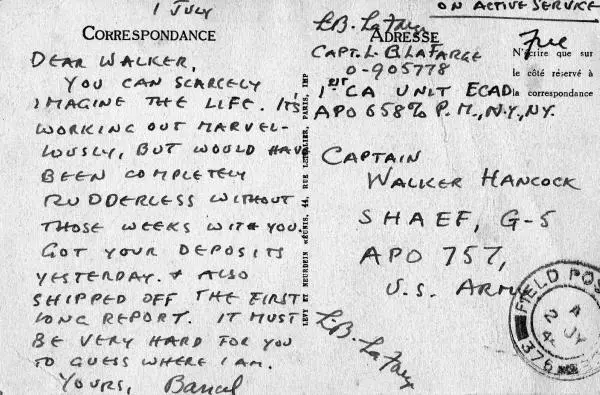 1 JULY
CORRESPONDANCE
DEAR WALKER,
YOU CAN SCARCELY
IMAGINE THE LIFE. IT'S
WORKING OUT MARVEL-
LOUSLY, BUT WOULD HAVE
BEEN COMPLETELY
RUDDERLESS WITHOUT
THOSE WEEKS WITH YOU.
GOT YOUR DEPOSITS
YESTERDAY. & ALSO
SHIPPED OFF THE FIRST
LONG REPORT. IT MUST
BE VERY HARD FOR YOU
TO GUESS WHERE I AM.
YOURS, Bancel
LEVY ET NEURDEIN RÉUNIS, 44, RUE LETELLIER, PARIS, IMP
ON ACTIVE SERVICE
L.B. LaFarge
ADRESSE
Free
CAPT. L B LAFARGE
O-905778
1ST CA UNIT ECAD
APO 658% P.M., N.Y., N.Y.
N'écrire que sur
le côté réservé à
la correspondance
CAPTAIN
WALKER HANCOCK
SHAEF, G-5
APO 757,
U.S. ARMY
L.B. LaFarge
FIELD POS
4
JY
376